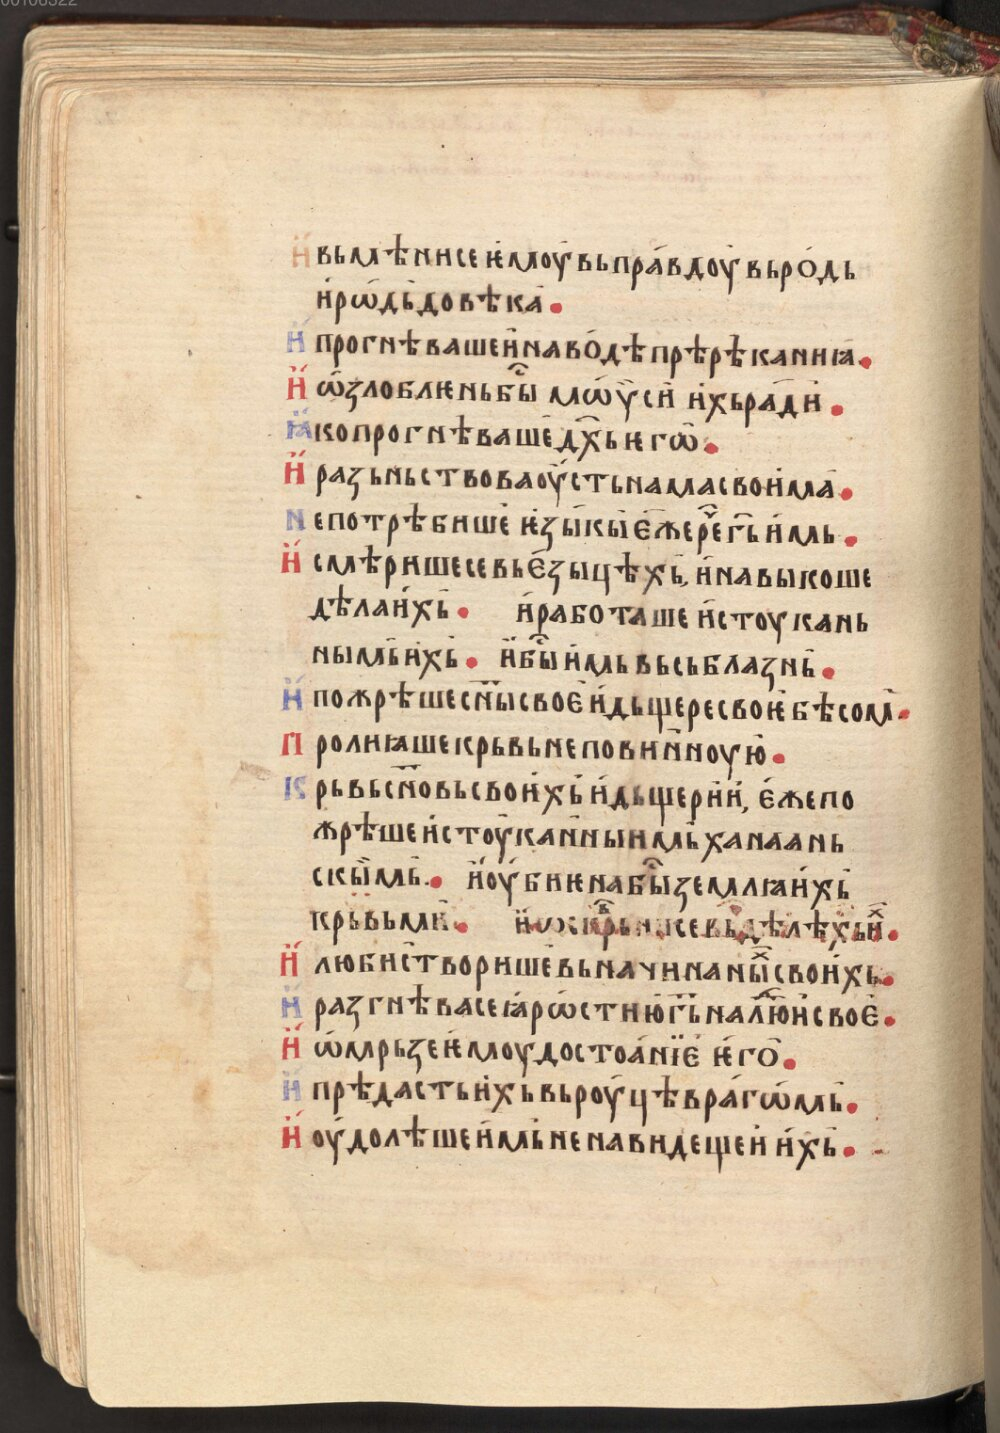 И҆ вьмѣнисе ѥ҆моу҆ вь пра́вдоу҆ вь ро́дь
и҆ рѡ́дь до вѣка̀ •
И҆ прогнѣваше и҆ на во́дѣ прѣрѣканиꙗ •
И҆ ѡ҆злоблѥнь бы̑ мѡѵ̈си и҆хь ра́ди •
Ꙗ҆ко прогнѣваше дх҃ь ѥго̀ •
И҆ разьньствова оу҆стьнама свои҆ма •
Не потрѣбише ѥ҆зы́кы є҆же ре́ч гь҃ и҆мь •
И҆ смѣрише се вь є҆зыцѣхь, и҆ навыкоше
дѣла и҆хь • и҆ работаше и҆стоукань
ны́мь и҆хь • и҆ бы̑ и҆мь вь сьблазнь •
И҆ пожрѣше сн҃ы своє҆ и҆ дьщере своѥ҆ бѣсом •
П ролиꙗше крьвь неповин́ноую҆ •
К рьвь сн҃овь свои҆хь и҆ дьщерїи, є҆же по
жрѣше и҆стоу҆кан́ныимь ханаань
скы̀мь • и҆ оу҆биѥна бы̑ землꙗ и҆хь
крьвьми • и҆ ѡ҆сквр́ьни се вь дѣлѣхь и҆х •
И҆ любис́твори́ше вь начинаны̑х свои҆хь •
И҆ разгнѣва се ꙗ҆рѡстию҆ гь҃ на лю́ди своє҆ •
И҆ ѡ҆мрьзе ѥ҆моу достоа́нїє҆ ѥ҆го̀ •
И҆ прѣдасть и҆хь вь роу҆цѣ вра́гѡ҆мь •
И҆ оу҆долѣше и҆мь ненавидещеи҆ и҆хь •